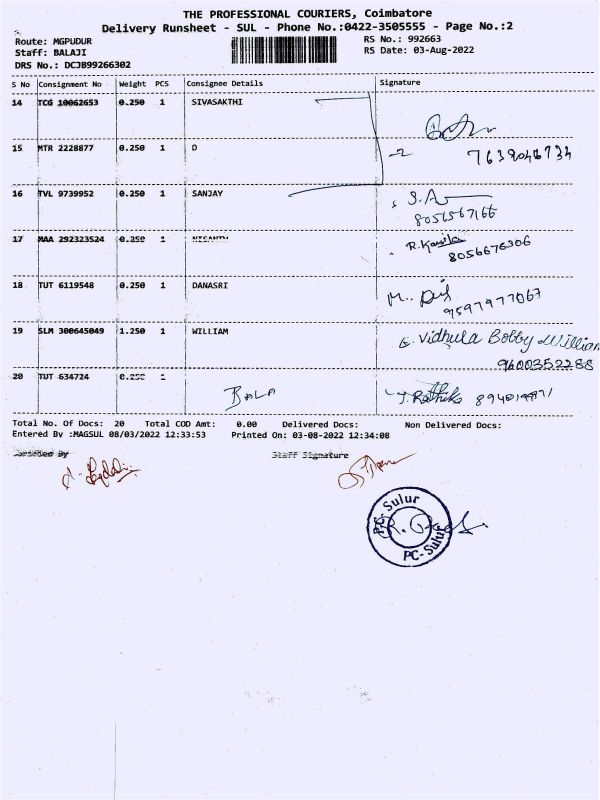 THE PROFESSIONAL COURIERS, Coimbatore
Delivery Runsheet - SUL - Phone No.:0422-3505555 - Page No.:2
Route: MGPUDUR RS No.: 992663
Staff: BALAJI RS Date: 03-Aug-2022
DRS No.: DCJB99266302
S No Consignment No Weight PCS Consignee Details Signature
14 TCG 10062653 0.250 1 SIVASAKTHI
15 MTR 2228877 0.250 1 D 7639046734
16 TVL 9739952 0.250 1 SANJAY
8056567166
17 MAA 292323524 0.250 1 NISANTH R. Kavila
8056676306
18 TUT 6119548 0.250 1 DANASRI
9597977067
19 SLM 300645049 1.250 1 WILLIAM E. Vidhula Bobby William
9600352288
20 TUT 634724 0.250 1 BALA J. Rathika
Total No. Of Docs: 20 Total COD Amt: 0.00 Delivered Docs: Non Delivered Docs:
Entered By :MAGSUL 08/03/2022 12:33:53 Printed On: 03-08-2022 12:34:08
Verified By Staff Signature
PC-Sulur
PC-Sulur